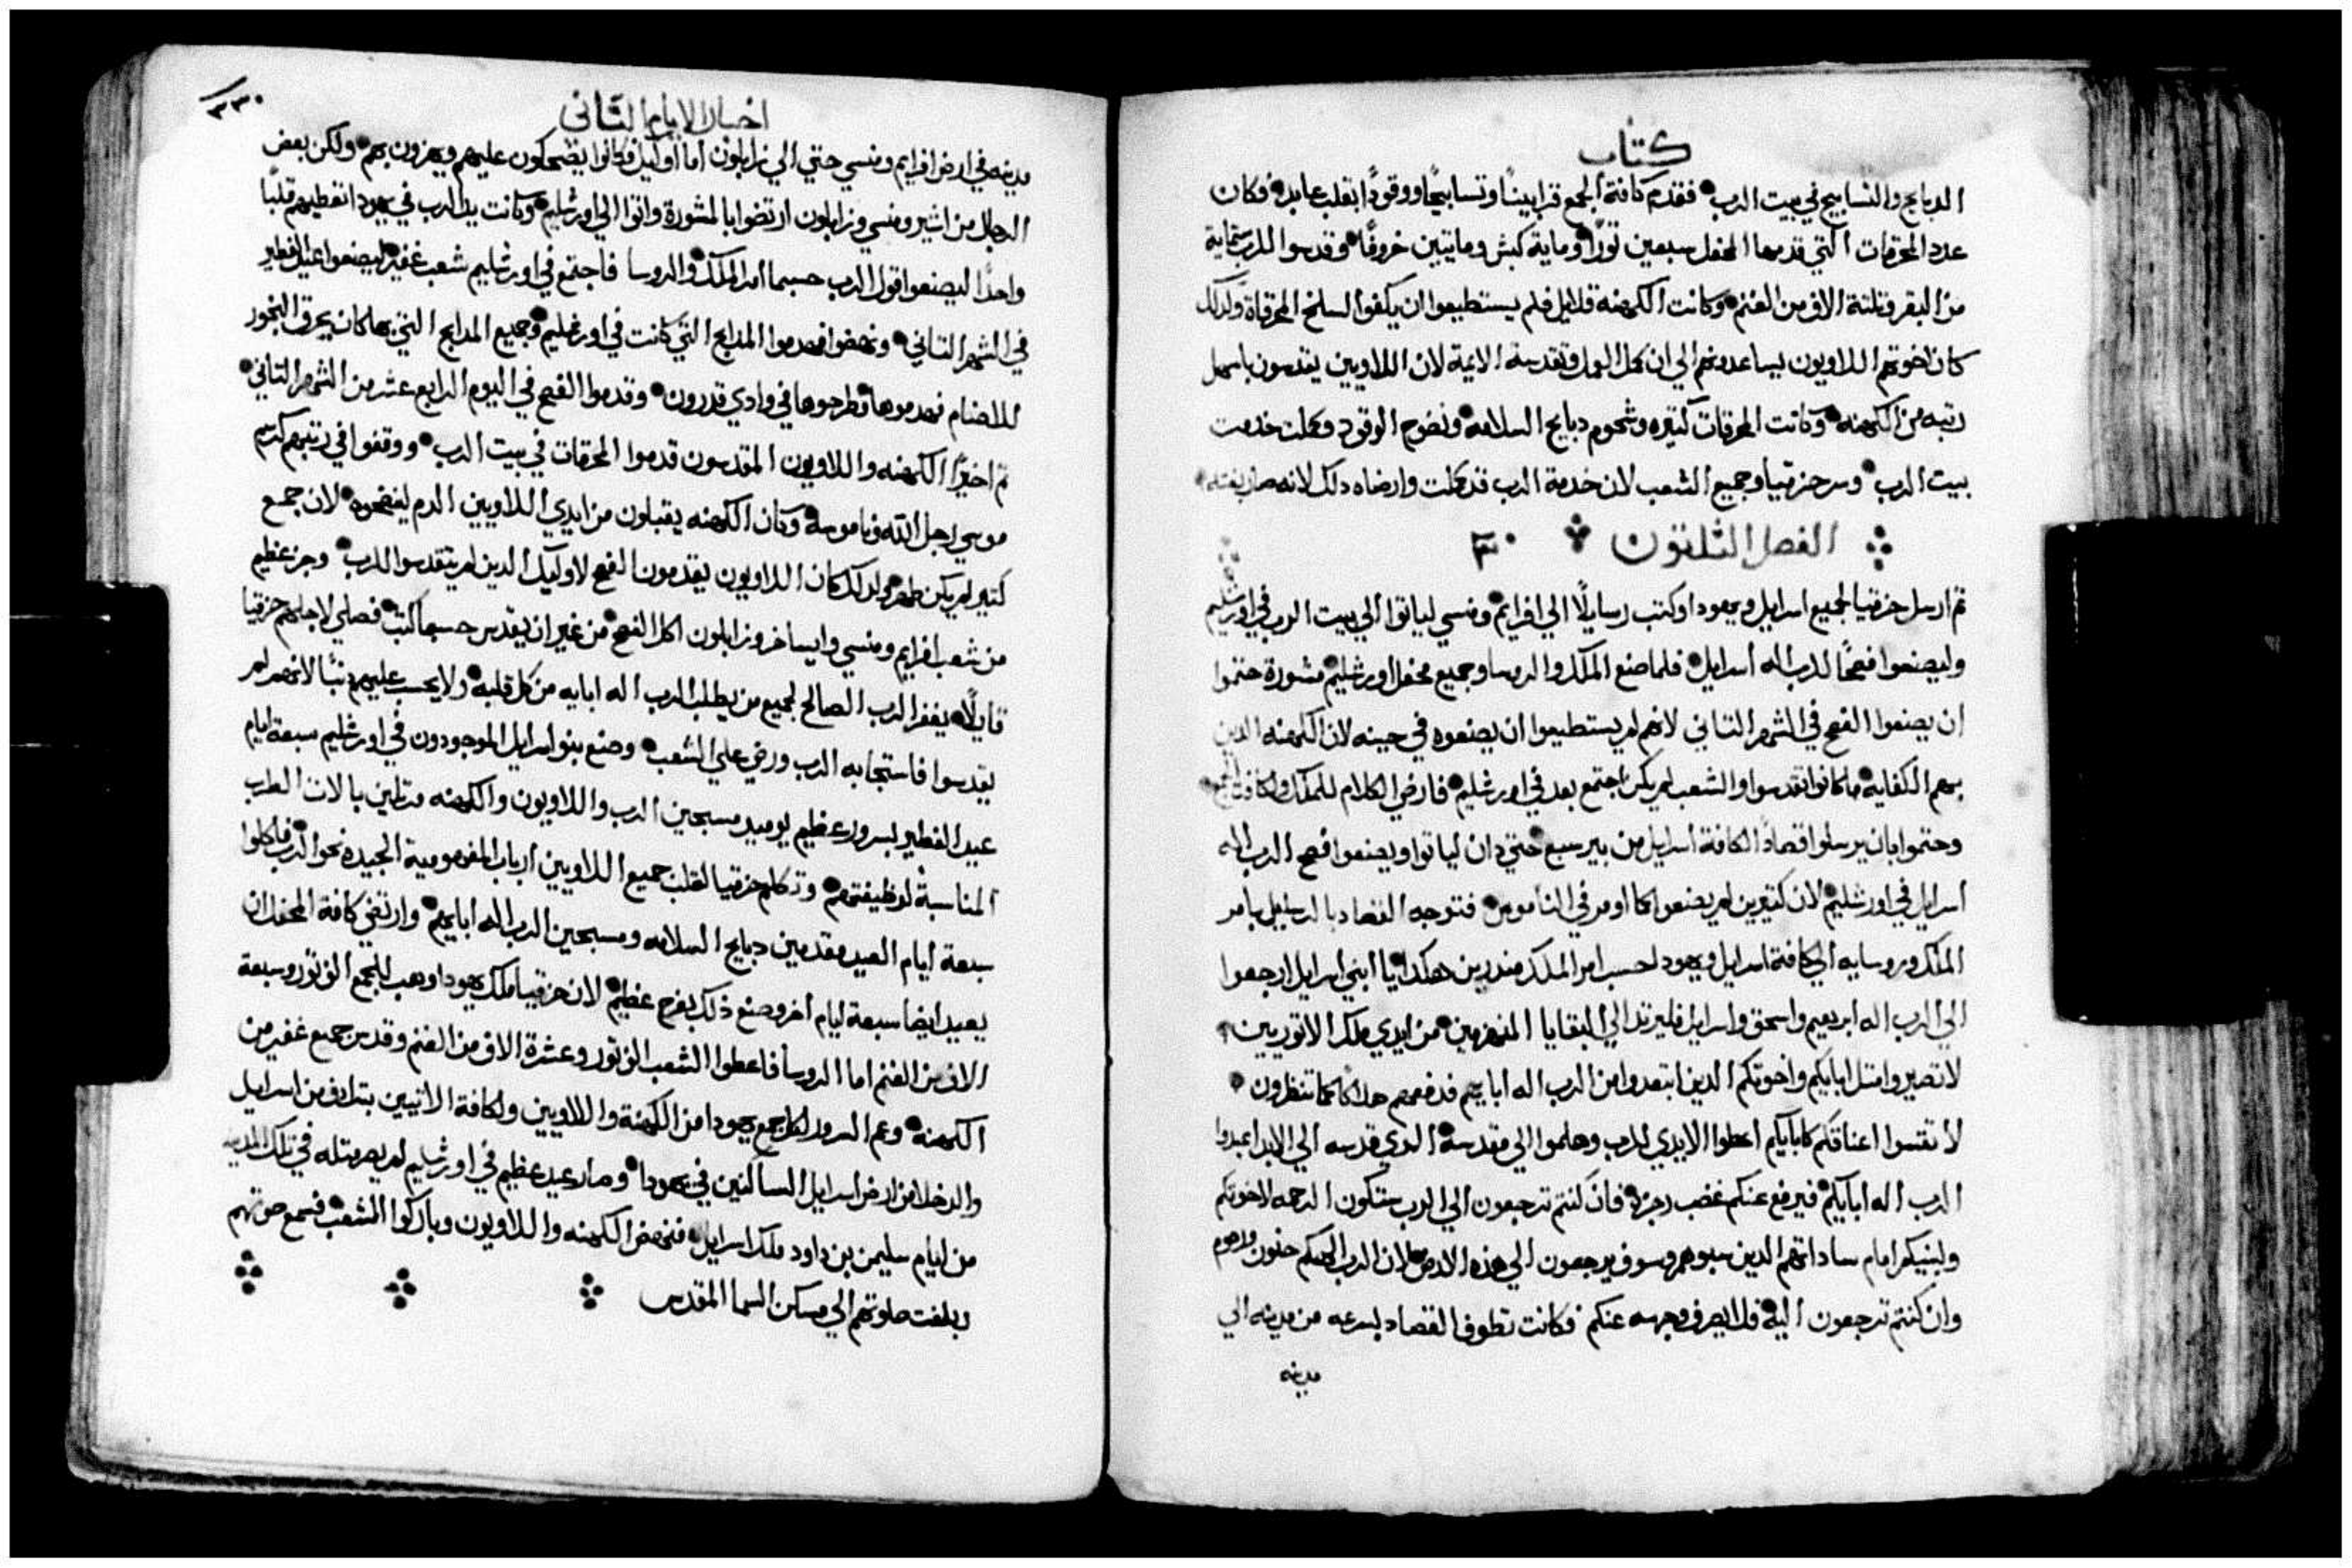 كتاب
الدبايح والتسابيح في بيت الرب فقدم كافة الجمع قرابينًا وتسابيحًا ووقودًا بقلب عابد فكان
عدد المحرقات التي قدمها المحفل سبعين تورًا وماية كبش ومايتين خروفًا وقدسوا للرب ستماية
من البقر وتلتة الاف من الغنم وكانت الكهنه قلايل فلم يستطيعوا ان يكفوا السلخ المحرقاة ولدلك
كان اخوتهم اللاويون يساعدونهم الي ان كمل العمل وتقدسة الايمة لان اللاويين يقدسون باسهل
رتبه من الكهنه وكانت المحرقات كتيره وشحوم دبايح السلامه ونضوح الوقود وكملت خدمت
بيت الرب وسر حزقيا وجميع الشعب لان خدمة الرب قد كملت وارضاه دلك لانه صار بغته
الفصل الثلثون ٣٠
تم ارسل حزقيا لجميع اسرايل ويهودا وكتب رسايلًا الي افرايم ومنسي لياتوا الي بيت الرب في اورشليم
وليصنعوا فصحًا للرب اله اسرايل فلما صنع الملك والروسا وجميع محفل اورشليم مشورة حتموا
ان يصنعوا الفصح في الشهر التاني لانهم لم يستطيعوا ان يصنعوه في حينه لان الكهنه الدين
بهم الكفايه ما كانوا تقدسوا والشعب لم يكن اجتمع بعد في اورشليم فارضي الكلام للملك ولكافة الجمع
وحتموا بان يرسلوا قصادًا لكافة اسرايل من بير سبع حتي دان لياتوا ويصنعوا فصح الرب اله
اسرايل في اورشليم لان كتيرين لم يصنعوا كما اومر في الناموس فتوجه القصاد بالرسايل بامر
الملك وروسايه الي كافة اسرايل ويهودا حسب امر الملك مندرين هكدا يا ابني اسرايل ارجعوا
الي الرب اله ابرهيم واسحق واسرايل فليرتد الي البقايا المنهزمين من ايدي ملك الاتوريين
لا تصيروا متل ابايكم واخوتكم الدين ابتعدوا من الرب اله ابايهم فدفعهم هلاكا كما تنظرون
لا تقسوا اعناقكم كابايكم اعطوا الايدي للرب وهلموا الي مقدسه الدي قدسه الي الابد اعبدوا
الرب اله ابايكم فيرفع عنكم غضب رجزه فان كنتم ترجعون الي الرب ستكون الرحمه لاخوتكم
ولبنيكم امام ساداتهم الدين سبوهم وسوف يرجعون الي هذه الارض لان الرب الهكم حنون ورحوم
وان كنتم ترجعون اليه فلا يصرف وجهه عنكم فكانت تطوف القصاد بسرعه من مدينه الي
مدينه
٣٣٠
اخبار الايام التاني
مدينه في ارض افرايم ومنسي حتي الي زابلون اما اوليك فكانوا يضحكون عليهم ويهزون بهم ولكن بعض
الرجال من اشير ومنسي وزابلون ارتضوا بالمشورة واتوا الي اورشليم وكانت يد الرب في يهودا تعطيهم قلبًا
واحدًا ليصنعوا قول الرب حسبما امر الملك والروسا فاجتمع في اورشليم شعب غفير ليصنعوا عيد الفطير
في الشهر التاني ونهضوا فهدموا المدابح التي كانت في اورشليم وجميع المدابح التي بها كان يحرق البخور
للاصنام فهدموها وطرحوها في وادي قدرون وقدموا الفصح في اليوم الرابع عشر من الشهر التاني
تم اخيرًا الكهنه واللاويون المقدسون قدموا المحرقات في بيت الرب ووقفوا في رتبهم كرسم
موسي رجل الله وناموسه وكان الكهنه يقبلون من ايدي اللاويين الدم لينضحوه لان جمع
كتير لم يكن طهر ولدلك كان اللاويون يقدمون الفصح لاوليك الدين لم يتقدسوا للرب وجز عظيم
من شعب افرايم ومنسي وايساخر وزابلون اكل الفصح من غير ان يقدس حسبما كتب فصلي لاجلهم حزقيا
قايلًا يغفر الرب الصالح لجميع من يطلب الرب اله ابايه من كل قلبه ولا يحسب عليهم دنبًا لانهم لم
يقدسوا فاستجابه الرب ورضي علي الشعب وصنع بنو اسرايل الموجودون في اورشليم سبعة ايام
عيد الفطير بسرور عظيم يوميد مسبحين الرب واللاويون والكهنه مرتلين بالات الطرب
المناسبة لوظيفتهم وتكلم حزقيا لقلب جميع اللاويين ارباب المفهومية الجيده نحو الرب فاكلوا
سبعة ايام العيد مقدمين دبايح السلامه ومسبحين الرب اله ابايهم وارتضي كافة المحفل ان
يعيد ايضا سبعة ايام اخر وصنع ذلك بفرح عظيم لان حزقيا ملك يهودا وهب للجمع الف تور وسبعة
الاف من الغنم اما الروسا فاعطوا الشعب الف تور وعشرة الاف من الغنم وقدس جميع غفير من
الكهنه وعم السرور لكل جمع يهودا من الكهنة واللاويين ولكافة الاتيين بترادف من اسرايل
والدخلا من ارض اسرايل الساكنين في يهودا وصار عيد عظيم في اورشليم لم يصر متله في تلك المدينه
من ايام سليمن بن داود ملك اسرايل فنهض الكهنه واللاويون وباركوا الشعب فسمع صوتهم
وبلغت صلوتهم الي مسكن السما المقدس